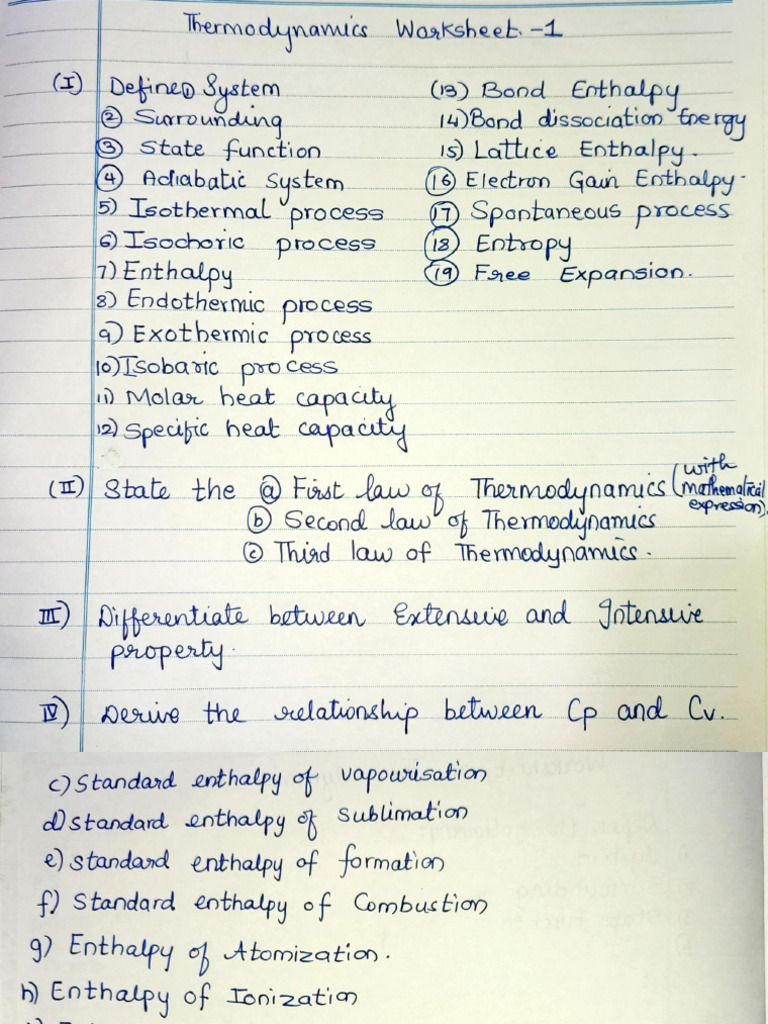 Thermodynamics Worksheet.-1
(I) Define① System
② Surrounding
③ State function
④ Adiabatic system
5) Isothermal process
6) Isochoric process
7) Enthalpy
8) Endothermic process
9) Exothermic process
10) Isobaric process
11) Molar heat capacity
12) Specific heat capacity
(13) Bond Enthalpy
14) Bond dissociation Energy
15) Lattice Enthalpy.
⑯ Electron Gain Enthalpy.
⑰ Spontaneous process
⑱ Entropy
⑲ Free Expansion.
(II) State the ⓐ First law of Thermodynamics (with mathematical expression).
ⓑ Second law of Thermodynamics
ⓒ Third law of Thermodynamics.
III) Differentiate between Extensive and Intensive
property.
IV) Derive the relationship between Cp and Cv.
c) Standard enthalpy of vapourisation
d) standard enthalpy of sublimation
e) standard enthalpy of formation
f) Standard enthalpy of Combustion
g) Enthalpy of Atomization.
h) Enthalpy of Ionization